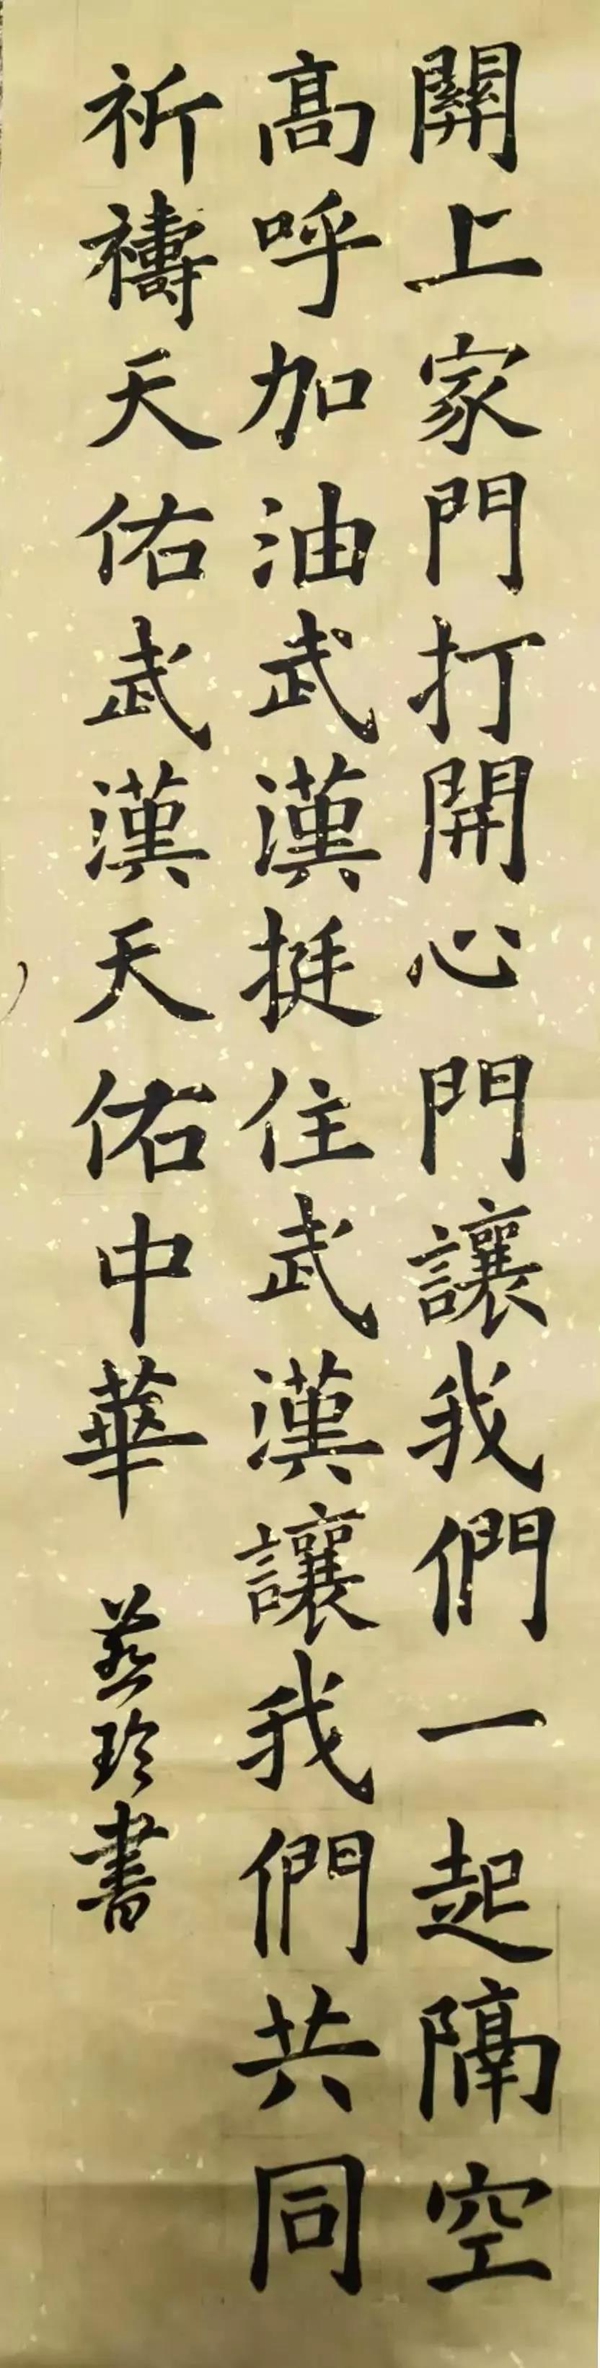 關上家門打開心門讓我們一起隔空
高呼加油武漢挺住武漢讓我們共同
祈禱天佑武漢天佑中華
燕玲書